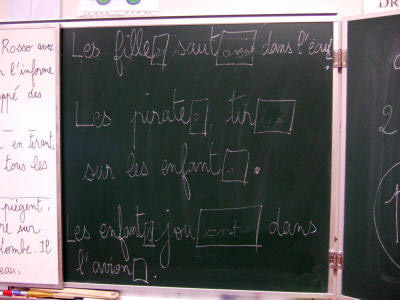 Rosso avec
l'informe
ppé des
en tirant
tous les
piègent,
re sur
tombe. Il
eau.
Les filles sautaient dans l'eau
Les pirates tirent
sur les enfants.
Les enfants jouent dans
l'avion.
DR
2